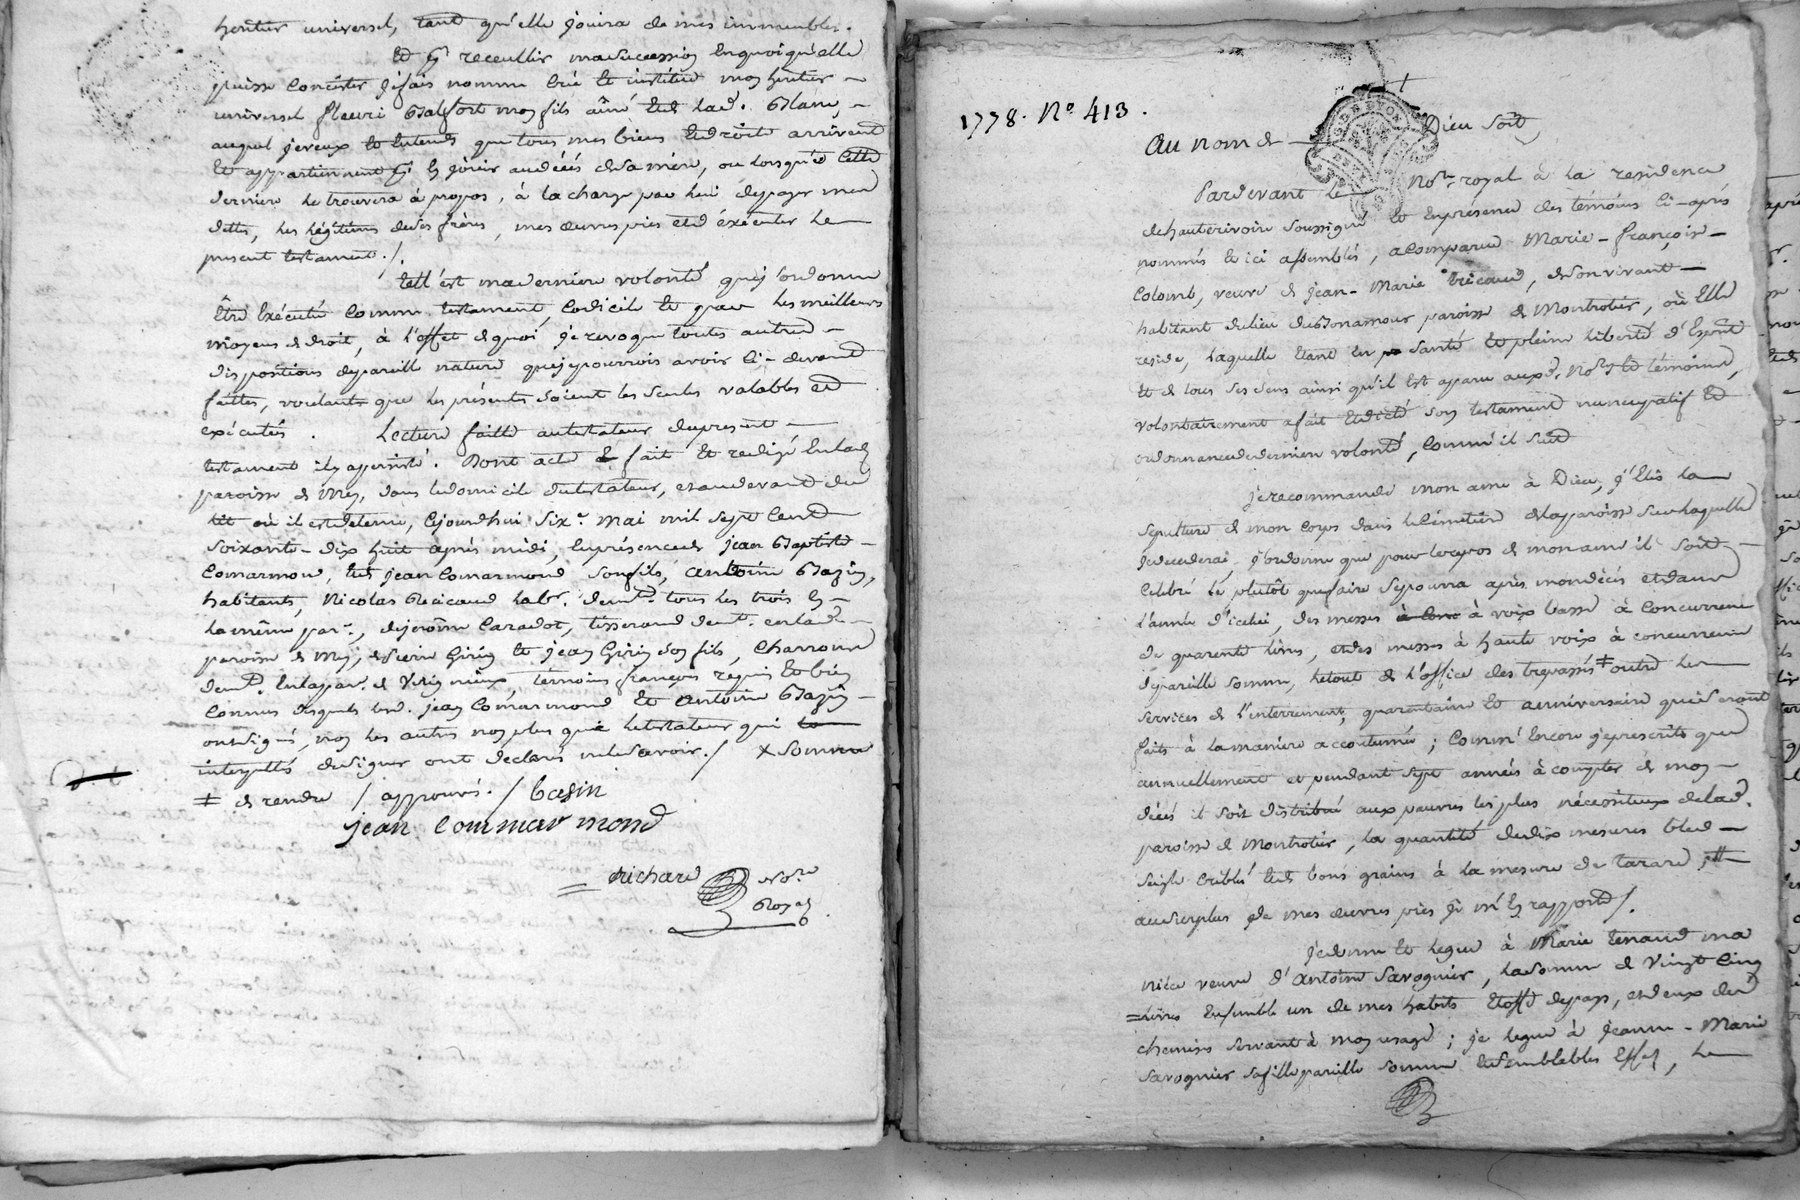 heritier universel, tant qu'elle jouira de mes immeubles.
Et pr receuillir ma succession en quoi qu'elle
puisse consister je fais nomme crée et institue mon heritier
universel fleuri Balfort mon fils aîné et de lad. Blanc,
auquel je veux et entends que tous mes biens et droits arrivent
et appartiennent pr en jouir au décés de sa mère, ou lorsque cette
derniere le trouvera à propos, à la charge par lui de payer mes
dettes, les légitimes de ses frères, mes œuvres pies et d'éxécuter le
present testament./.
telle est ma derniere volonté que j'ordonne
être exécutée comme testament, codicile et par les meilleurs
moyens de droit, à l'effet de quoi je revoque toutes autres
dispositions de pareille nature que je pourrois avoir ci-devant
faittes, voulant que les présentes soient les seules valables et
exécutées. Lecture faitte au testateur du present
testament il y a persisté. Dont acte fait et redigé en lad.
paroisse de Mey, dans le domicile du testateur, et au devant du
lit où il est detenu, cejourdhui six.e mai mil sept cent
soixante-dix huit après midi, en présence de jean Baptiste
Comarmon, et de jean Comarmond son fils, antoine Bazin,
habitants, Nicolas Recicaud lab.r demt. tous les trois en
la même par.e, de jerôme Caradot, tisserand demt. en lad.
paroisse de Mey, de pierre Girin et jean Girin son fils, charrons
demt. en la par. de Virigneux, temoins françois requis et bien
connus desquels led. jean Comarmond et antoine Bazin
ont signé, non les autres non plus que le testateur qui
interpellés de signer ont declaré ne le savoir./ x somme
‡ de rendre / approuvés./ basin
jean Commarmond
richard No.re
Royal
1778. No 413.
Au nom de Dieu soit
Pardevant le No.re royal à la residence
de hauterivoire soussigné et en presence des témoins ci-après
nommés et ici assemblés, a comparu Marie-françoise
Colomb, veuve de jean-Marie Tricaud, de son vivant
habitant du lieu du Bonamour paroisse de Montrotier, où elle
reside, laquelle étant en santé et pleine liberté d'esprit
et de tous ses sens ainsi qu'il est aparu auxd. No.re et témoins,
volontairement a fait et dicté son testament nuncupatif et
ordonnance de derniere volonté, comme il suit
je recommande mon ame à Dieu, j'elis la
sepulture de mon corps dans le cémetiere de la paroisse sur laquelle
je decederai. j'ordonne que pour le repos de mon ame il soit
celebré le plutôt que faire se pourra après mon décés et dans
l'année d'icelui, des messes à voix basse à concurrence
de quarente livres, et des messes à haute voix à concurrence
de pareille somme, le tout de l'office des trepassés ‡ outre les
services de l'enterrement, quarantaine et anniversaire qui seront
faits à la maniere accoutumée; comme encore je prescrits que
annuellement et pendant sept années à compter de mon
décés il soit distribué aux pauvres les plus nécessiteux de lad.
paroisse de Montrotier, la quantité de dix mesures bled
seigle criblé et de bons grains à la mesure de tarare,
au surplus de mes œuvres pies je m'en rapporte/.
je donne et legue à Marie Tenaud ma
niéce veuve d'antoine Savognier, la somme de vingt cinq
livres ensemble un de mes habits etoffe de pays, et deux de
chemises servant à mon usage; je legue à jeanne-Marie
Savognier sa fille pareille somme et semblables effets, le